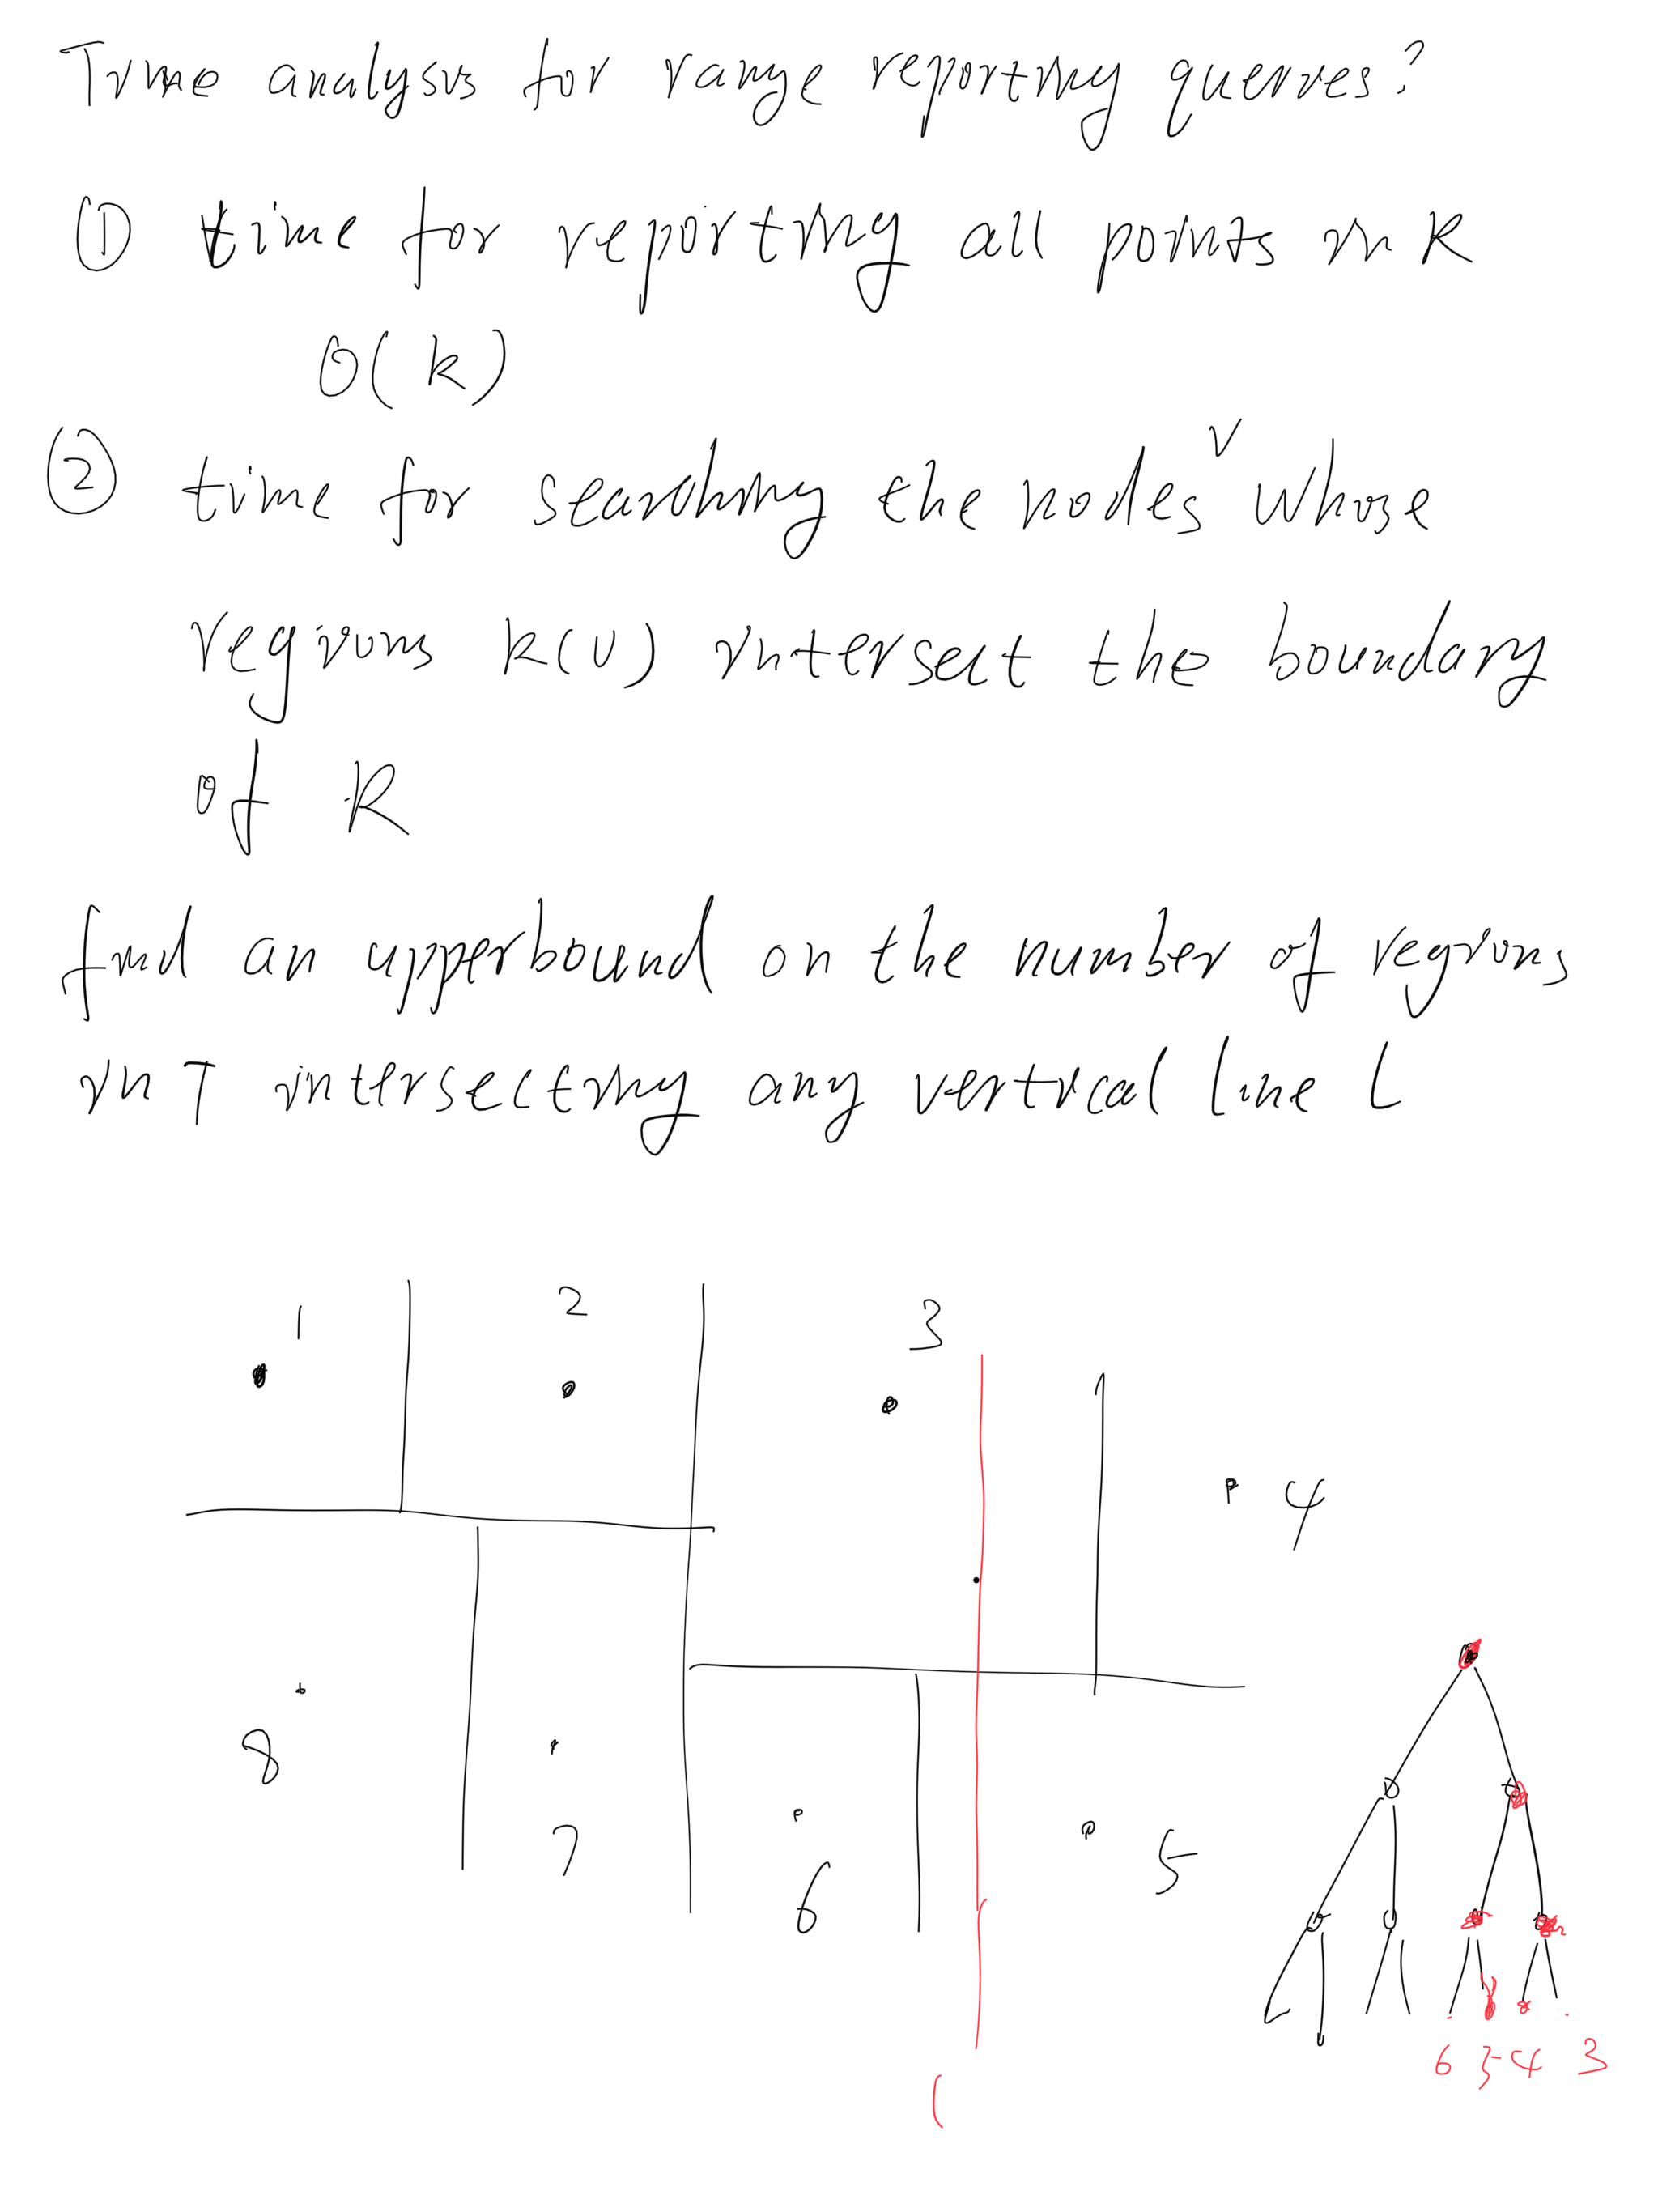 Time analysis for range reporting queries?
① time for reporting all points in R
O(k)
② time for searching the nodes v whose
regions R(v) intersect the boundary
of R
find an upperbound on the number of regions
in T intersecting any vertical line l
1 2 3
4
8
7
6 5
6 5 4 3
l